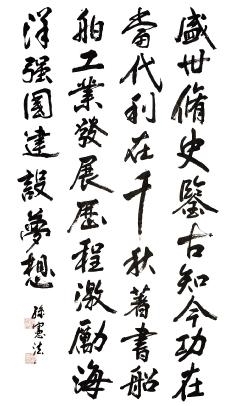 盛世脩史鑒古知今功在
當代利在千秋著書船
舶工業發展歷程激勵海
洋强國建設夢想
孫憲法